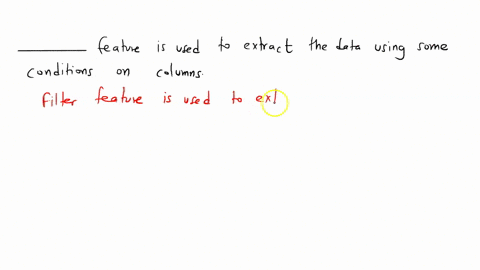 ________ feature is used to extract the data using some
conditions on columns.
Filter feature is used to ext